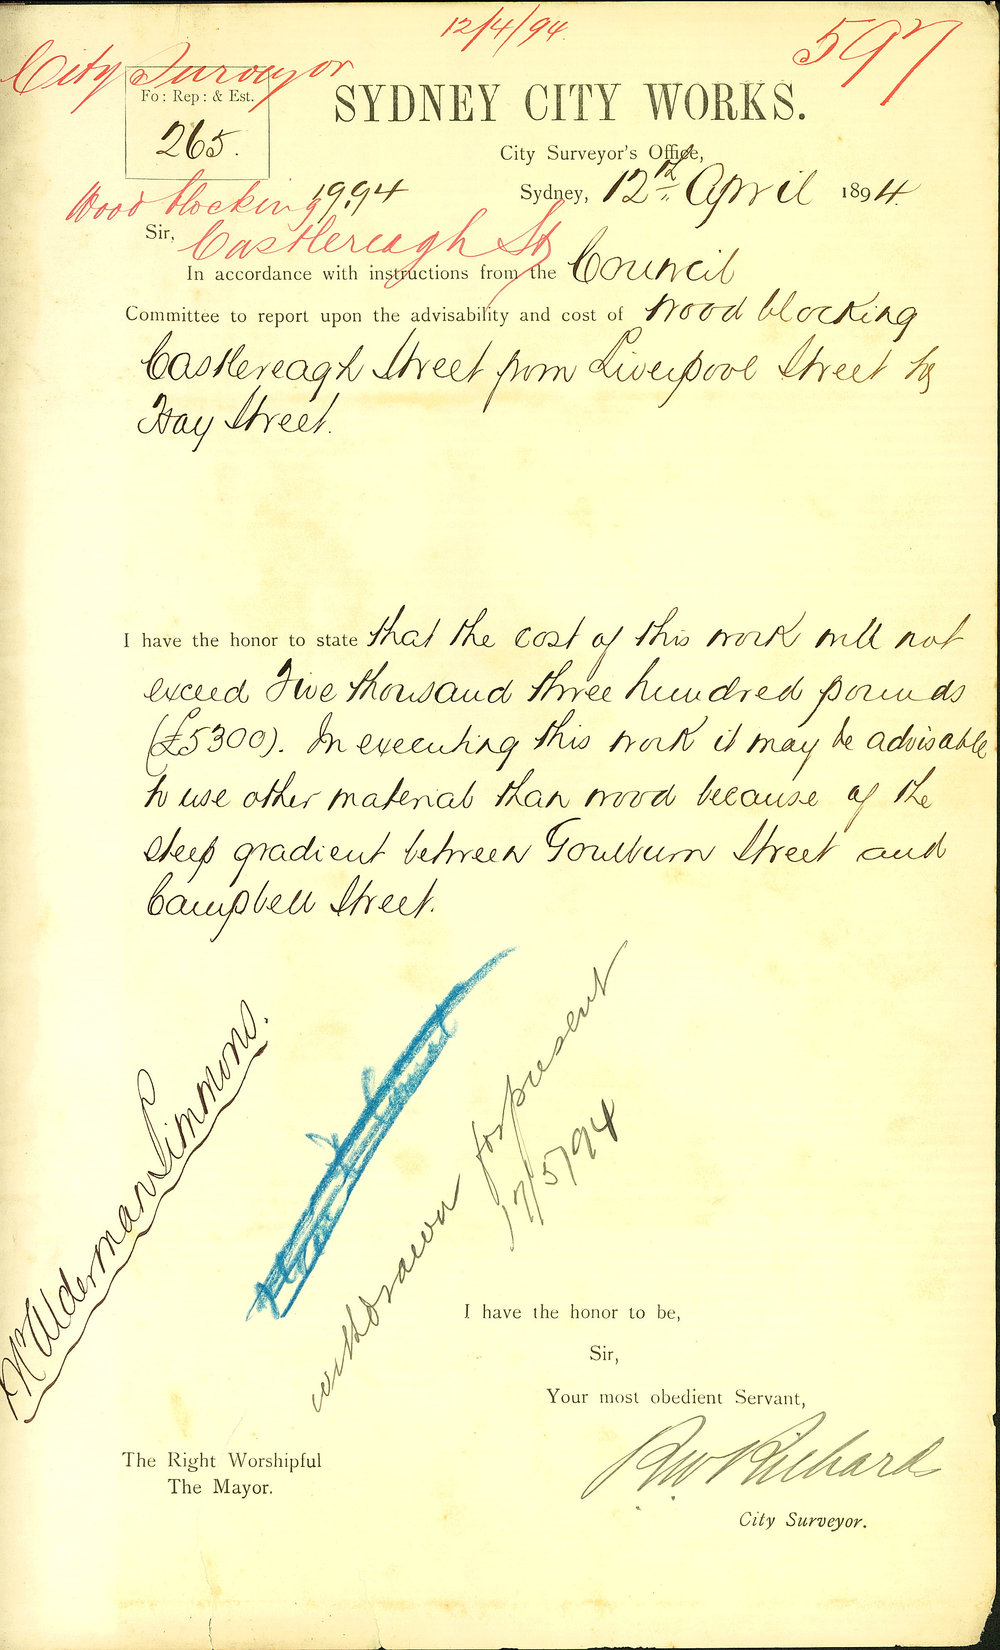 12/4/94
597
City Surveyor
Fo: Rep: & Est.
265.
SYDNEY CITY WORKS.
City Surveyor's Office,
Sydney, 12th April 1894.
Wood blocking 1994
Castlereagh St
Sir,
In accordance with instructions from the Council
Committee to report upon the advisability and cost of wood blocking
Castlereagh Street from Liverpool Street to
Hay Street.
I have the honor to state that the cost of this work will not
exceed Five thousand three hundred pounds
(£5300). In executing this work it may be advisable
to use other material than wood because of the
steep gradient between Goulburn Street and
Campbell Street.
Mr Alderman Simmons.
withdrawn for present
17/5/94
I have the honor to be,
Sir,
Your most obedient Servant,
The Right Worshipful
The Mayor.
RW Richard
City Surveyor.